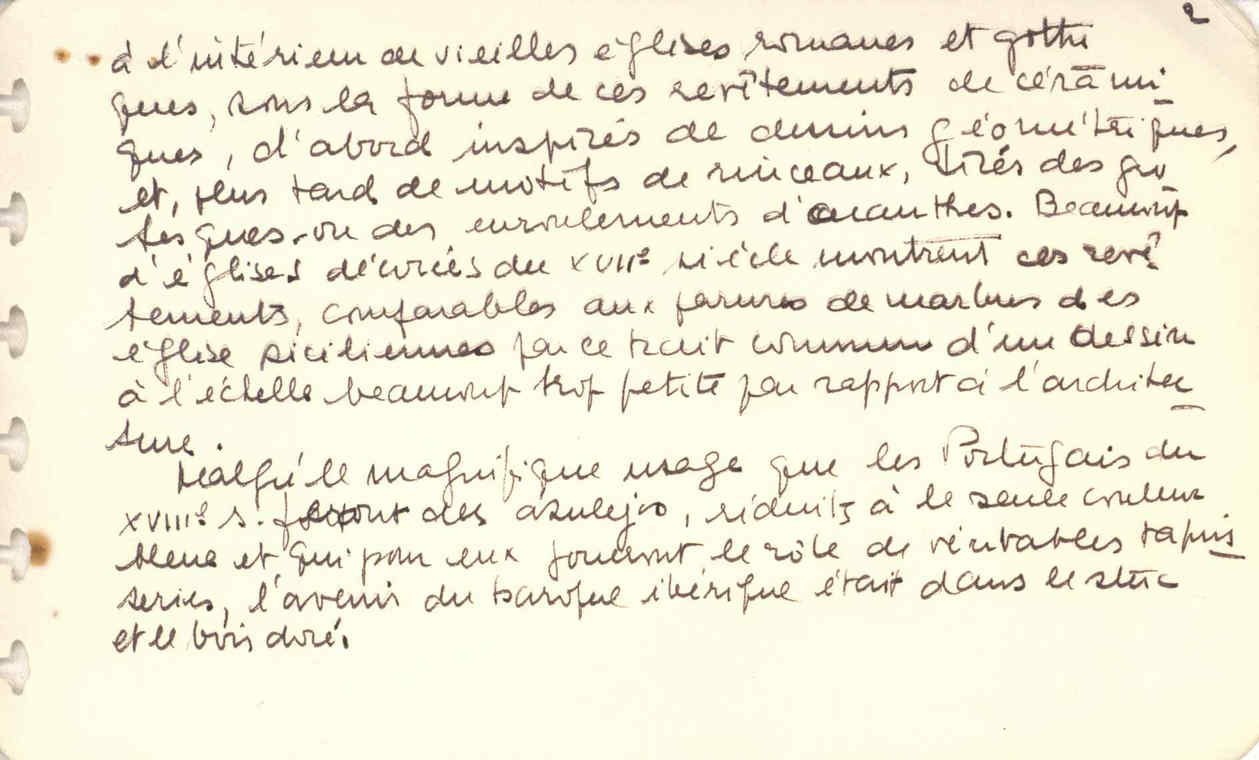 2
à l'intérieur de vieilles églises romanes et gothi
ques, sous la forme de ces revêtements de cérami
ques, d'abord inspirés de dessins géométriques,
et, plus tard de motifs de rinceaux, tirés des gro
tesques ou des enroulements d'acanthes. Beaucoup
d'églises décorées du XVIIe siècle montrent ces revê
tements, comparables aux parures de marbres des
église siciliennes par ce trait commun d'un dessin
à l'échelle beaucoup trop petite par rapport à l'architec
ture.
Malgré le magnifique usage que les Portugais du
XVIIIe s. feront des azulejos, réduits à la seule couleur
bleue et qui pour eux joueront le rôle de véritables tapis
series, l'avenir du baroque ibérique était dans le stuc
et le bois doré.